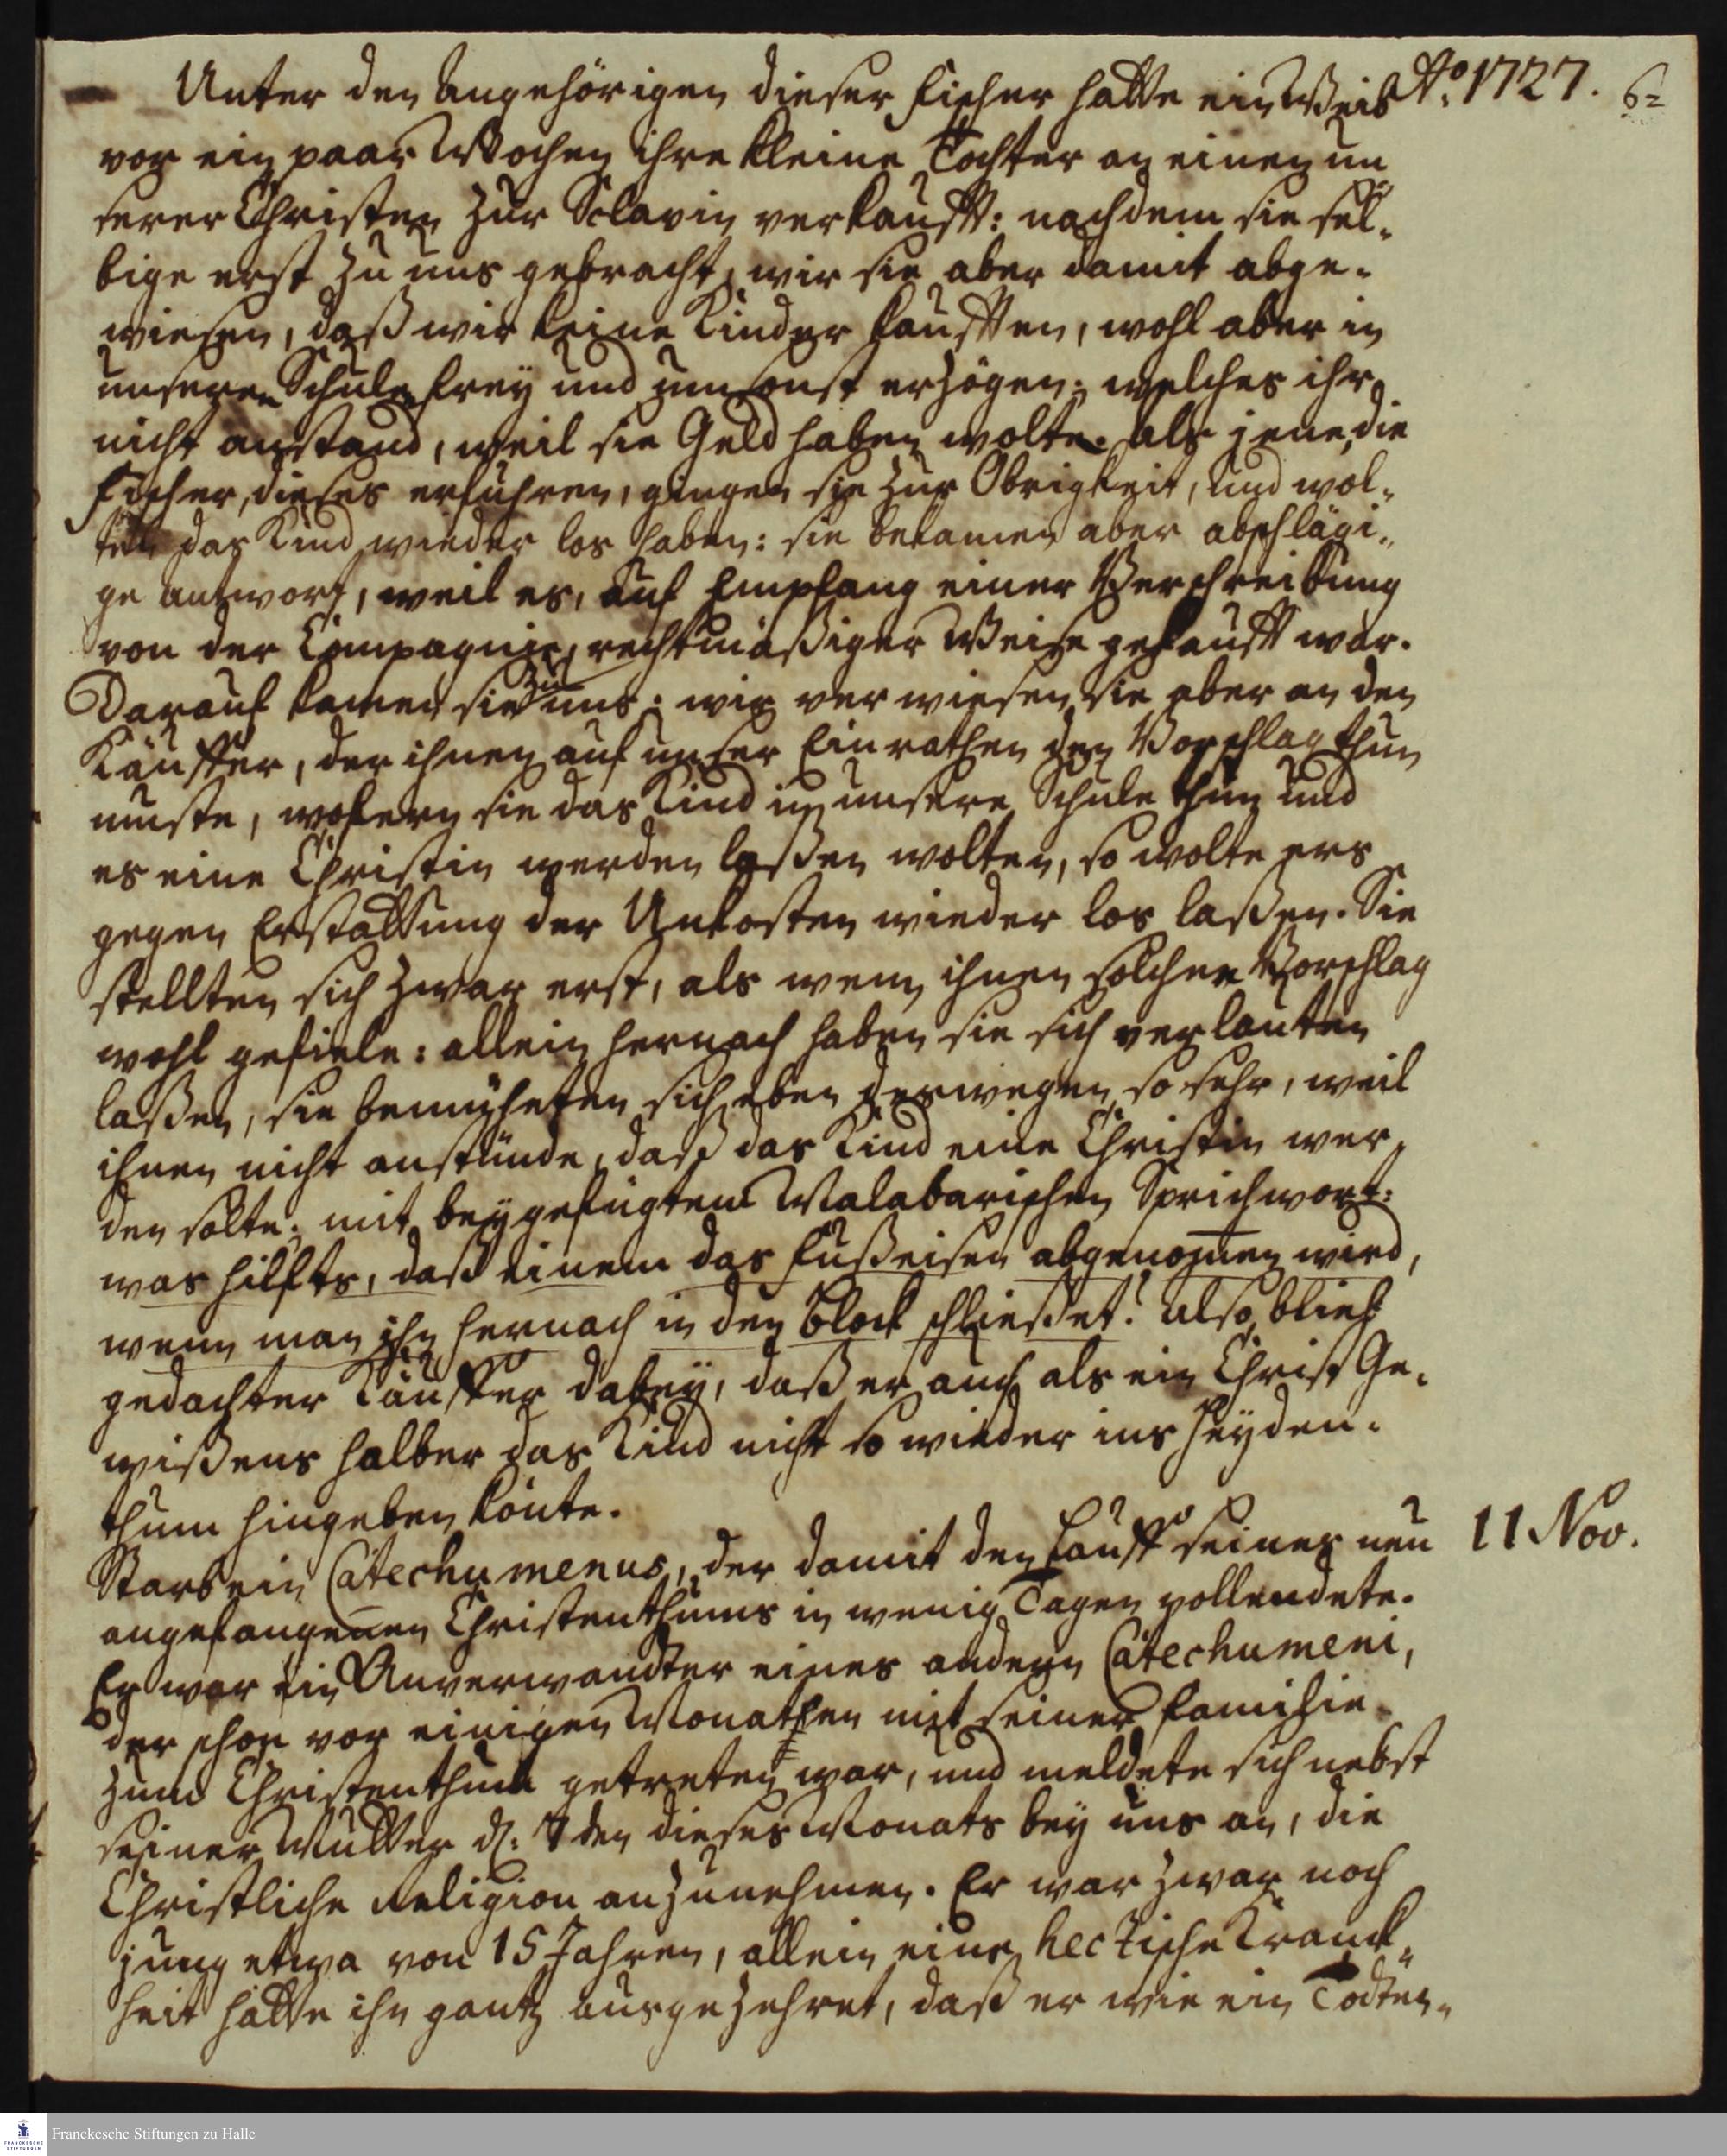 Aō 1727. 62
Unter den Angehörigen dieser Fischer hatte ein Weib
vor ein paar Wochen ihre kleine Tochter an einen un
serer Christen zur Sclavin verkaufft: nachdem sie sel-
bige erst zu uns gebracht, wir sie aber damit abge-
wiesen, daß wir keine Kinder kaufften, wohl aber in
unseren Schulen frey und umsonst erzögen; welches ihr
nicht anstand, weil sie Geld haben wolte. Als jene, die
Fischer, dieses erfuhren, gingen sie zur Obrigkeit, und wol-
ten das Kind wieder los haben: sie bekamen aber abschlägi-
ge antwort, weil es, auf Empfang einer Verschreibung
von der Compagnie, rechtmäßiger Weise gekaufft war.
Darauf kamen sie zu uns: wir verwiesen sie aber an den
Käuffer, der ihnen auf unser Einrathen den Vorschlag thun
muste, wofern sie das Kind in unsere Schule thun und
es eine Christin werden laßen wolten, so wolte ers
gegen Erstattung der Unkosten wieder los laßen. Sie
stellten sich zwar erst, als wenn ihnen solcher Vorschlag
wohl gefiele: allein hernach haben sie sich verlauten
laßen, sie bemüheten sich eben deswegen so sehr, weil
ihnen nicht anstünde, daß das Kind eine Christin wer-
den solte; mit beygefügtem Malabarischen Sprichwort:
was hilffts, daß einem das Fußeisen abgenom̄en wird,
wenn man ihn hernach in den Block schließet! Also blieb
gedachter Käuffer dabey, daß er auch als ein Christ Ge-
wißens halber das Kind nicht so wieder ins Heyden-
thum hingeben könte.
11 Nov.
Starb ein Catechumenus, der damit den Lauff seines neu
angefangenen Christenthums in wenig Tagen vollendete.
Er war ein Anverwandter eines andern Catechumeni,
der schon vor einigen Monathen mit seiner Familie
zum Christenthum getreten war, und meldete sich nebst
seiner Mutter d. 7den dieses Monats bey uns an, die
Christliche Religion anzunehmen. Er war zwar noch
jung etwa von 15 Jahren, allein eine hectische Kranck-
heit hatte ihn gantz ausgezehret, daß er wie ein Todten-
Franckesche Stiftungen zu Halle